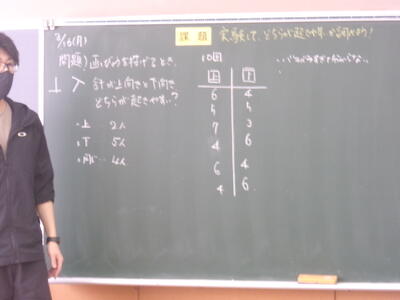 3/16(月)
課題 実験して、どちらが起きやすいか調べよう!
問題) 画びょうを投げるとき、
針が上向きと下向き
どちらが起きやすい?
・上 … 2人
・下 … 5人
・同じ … 4人
10回
上 下
6 4
5 5
7 3
4 6
6 4
4 6